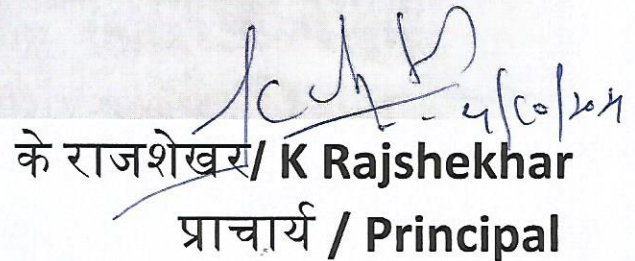 के राजशेखर/ K Rajshekhar
प्राचार्य / Principal